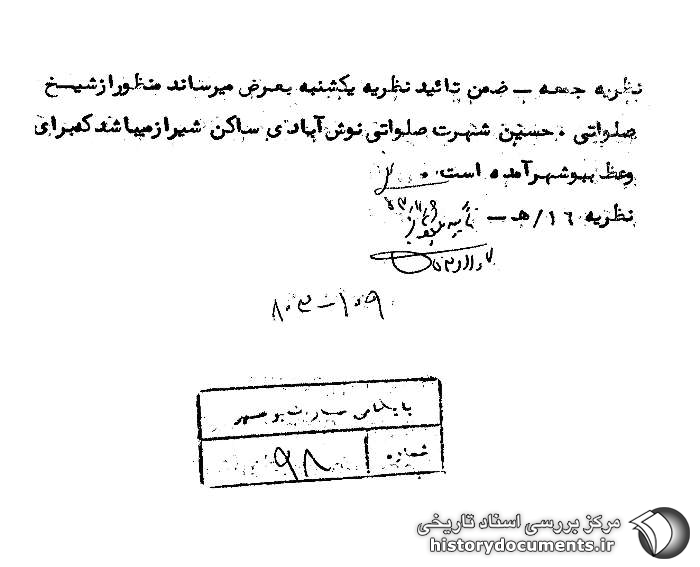 نظریه جمعه ـ ضمن تائید نظریه یکشنبه بعرض میرساند منظور از شیخ
صلواتی ، حسین شهرت صلواتی نوش آبادی ساکن شیراز میباشد که برای
وعظ ببوشهر آمده است .
نظریه ۱۶/هـ ـ
۸۰۳ - ۱۰۹
بایگانی ساواک بوشهر
شماره ۹۸
مرکز بررسی اسناد تاریخی
historydocuments.ir